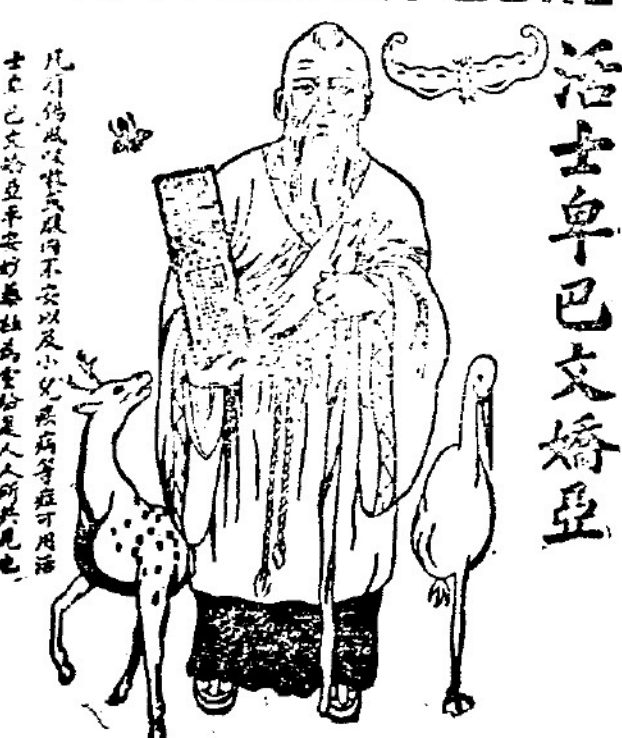 活士卑巴文嬌亞
凡有傷風咳嗽或腹內不安以及小兒疾病等症可用活
士卑巴文嬌亞平安妙藥極為靈是人人所共見也